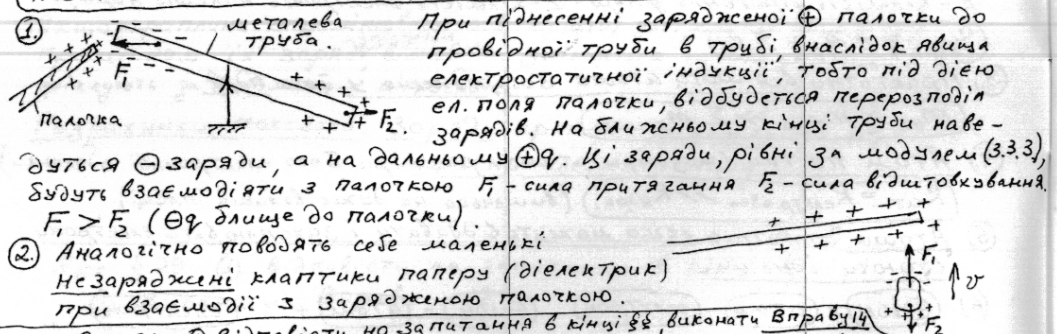 ① металева При піднесенні зарядженої ⊕ палочки до
труба. провідної труби в трубі, внаслідок явища
F₁ електростатичної індукції, тобто під дією
палочка F₂. ел. поля палочки, відбудеться перерозподіл
зарядів. На ближньому кінці труби наве-
дуться ⊖ заряди, а на дальньому ⊕q. Ці заряди, рівні за модулем (З.З.З),
будуть взаємодіяти з палочкою F₁ - сила притягання F₂ - сила відштовхування.
F₁ > F₂ (⊖q ближще до палочки)
② Аналогічно поводять себе маленькі
незаряджені клаптики паперу (діелектрик)
при взаємодії з зарядженою палочкою.
F₁ v
F₂
відповісти на запитання в кінці §§, виконати Вправу 14